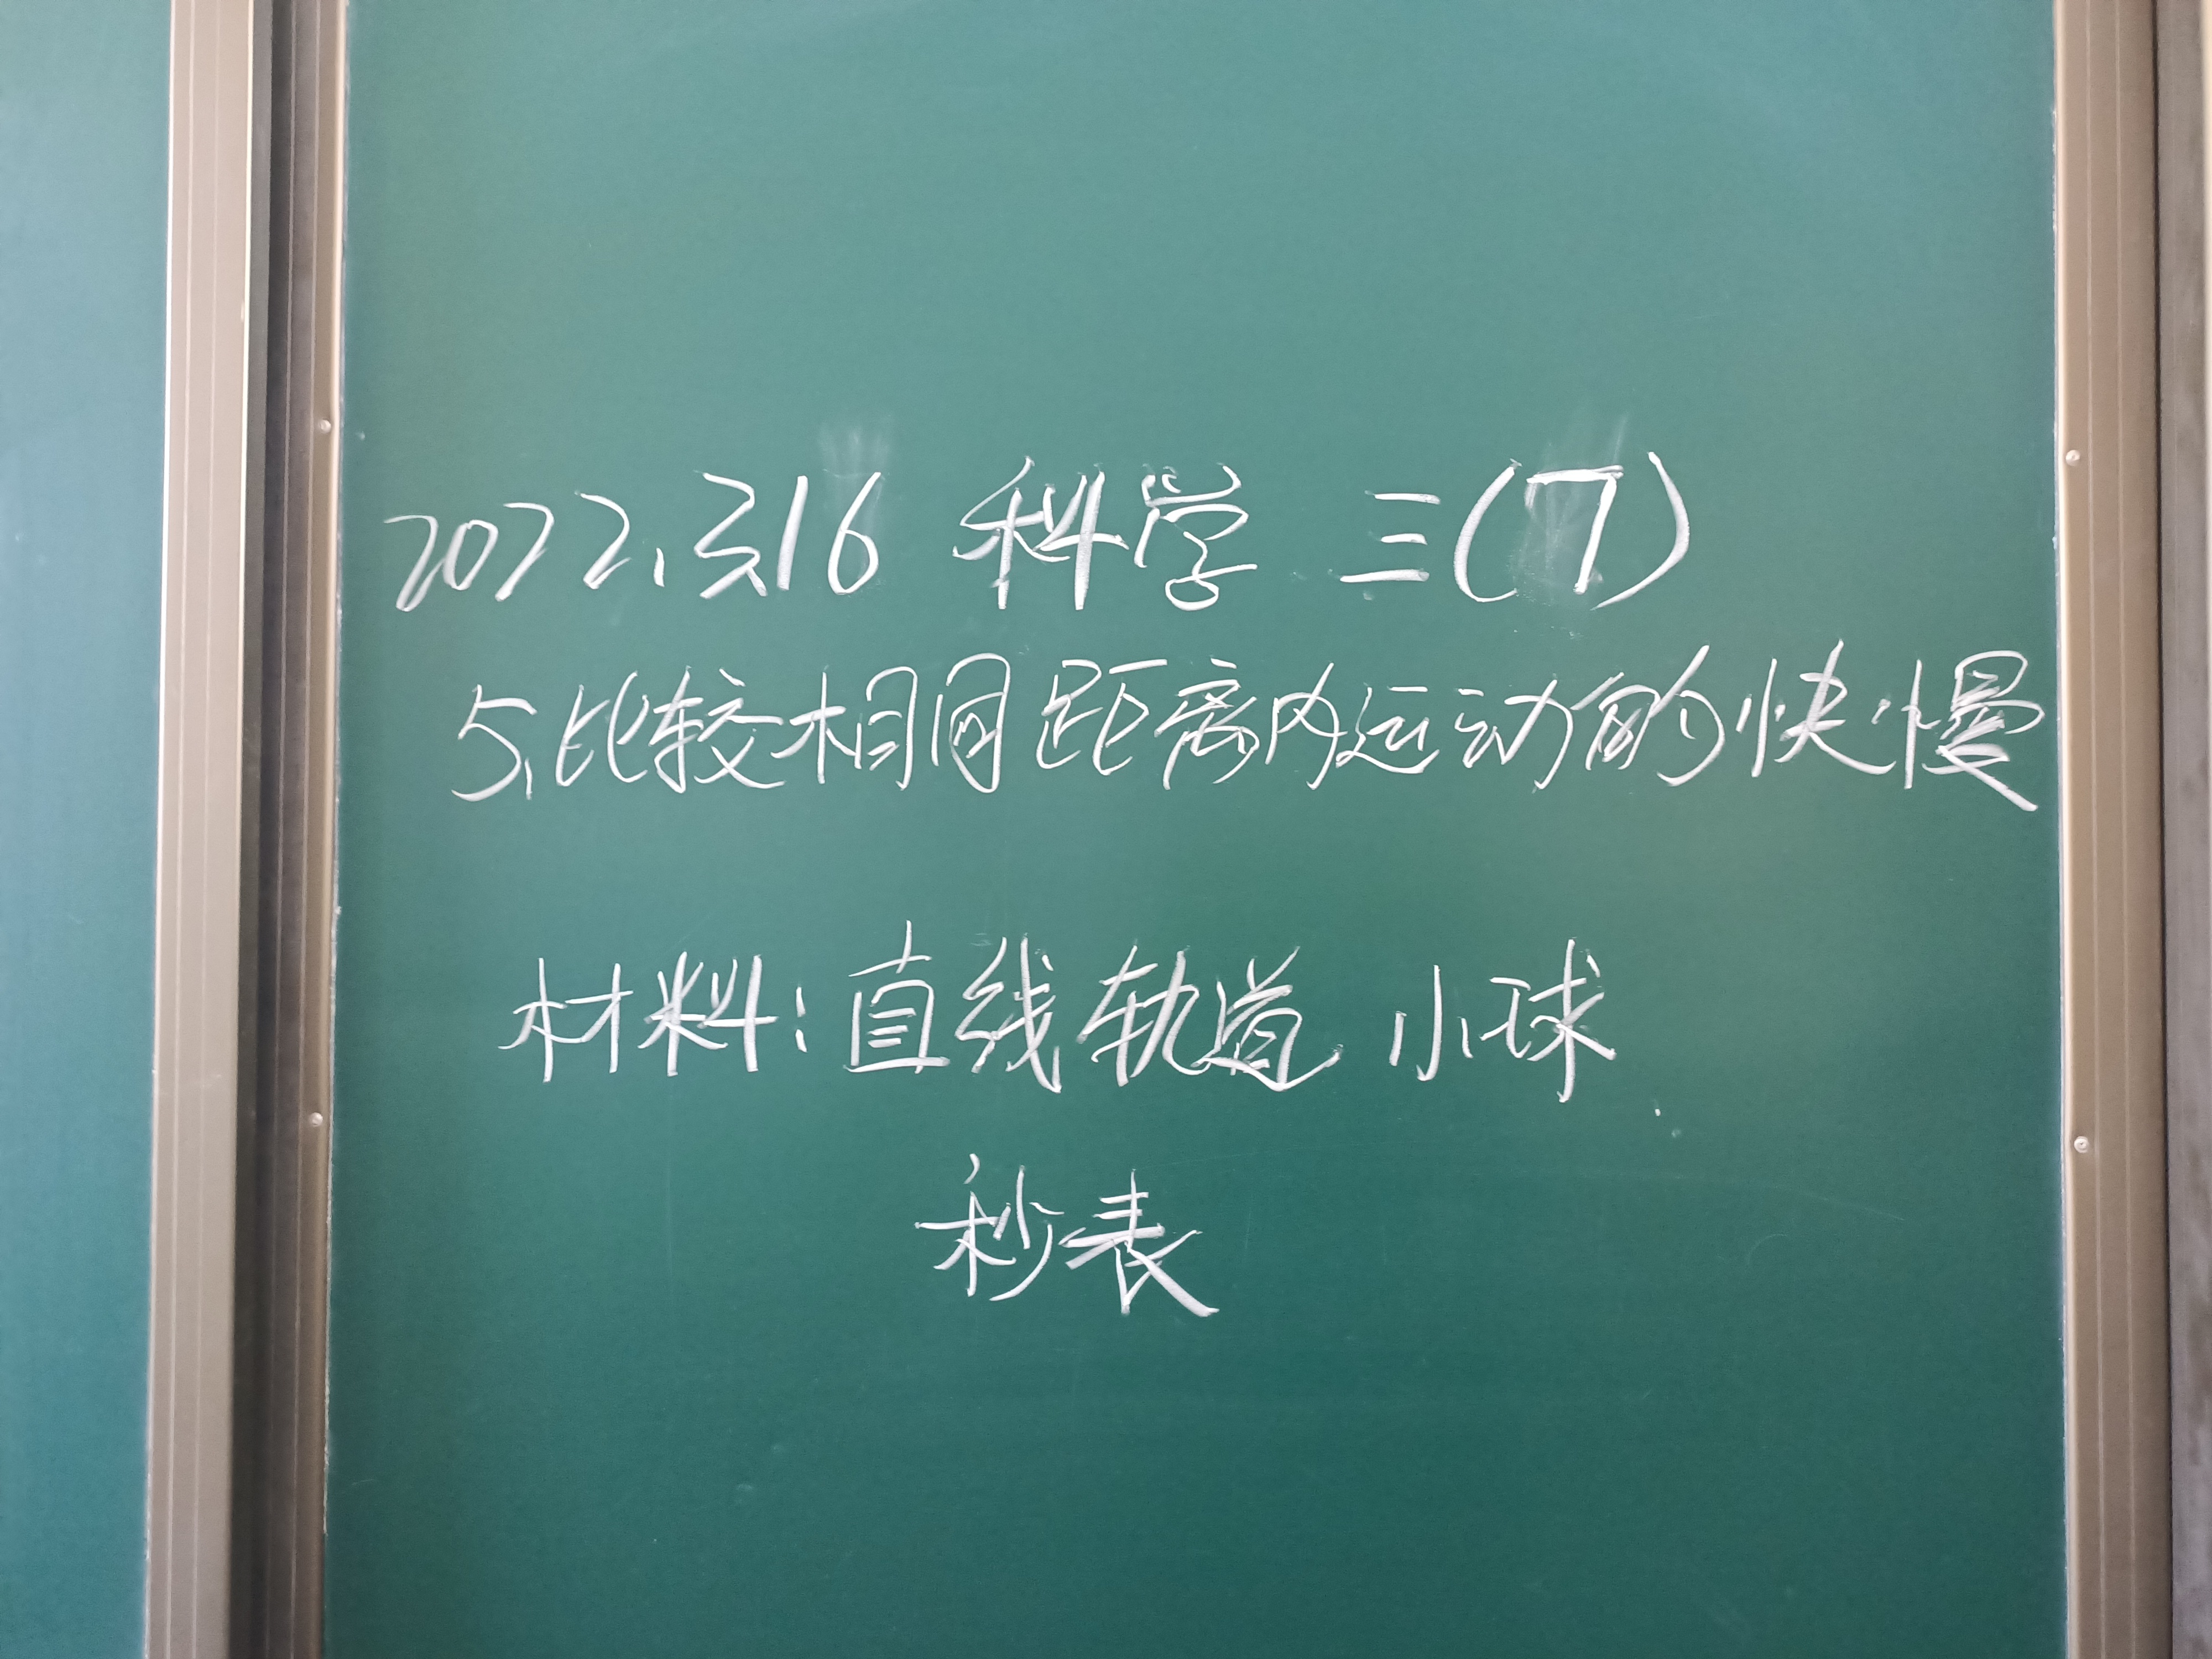 2022.3.16 科学 三(7)
5.比较相同距离内运动的快慢
材料:直线轨道 小球
秒表